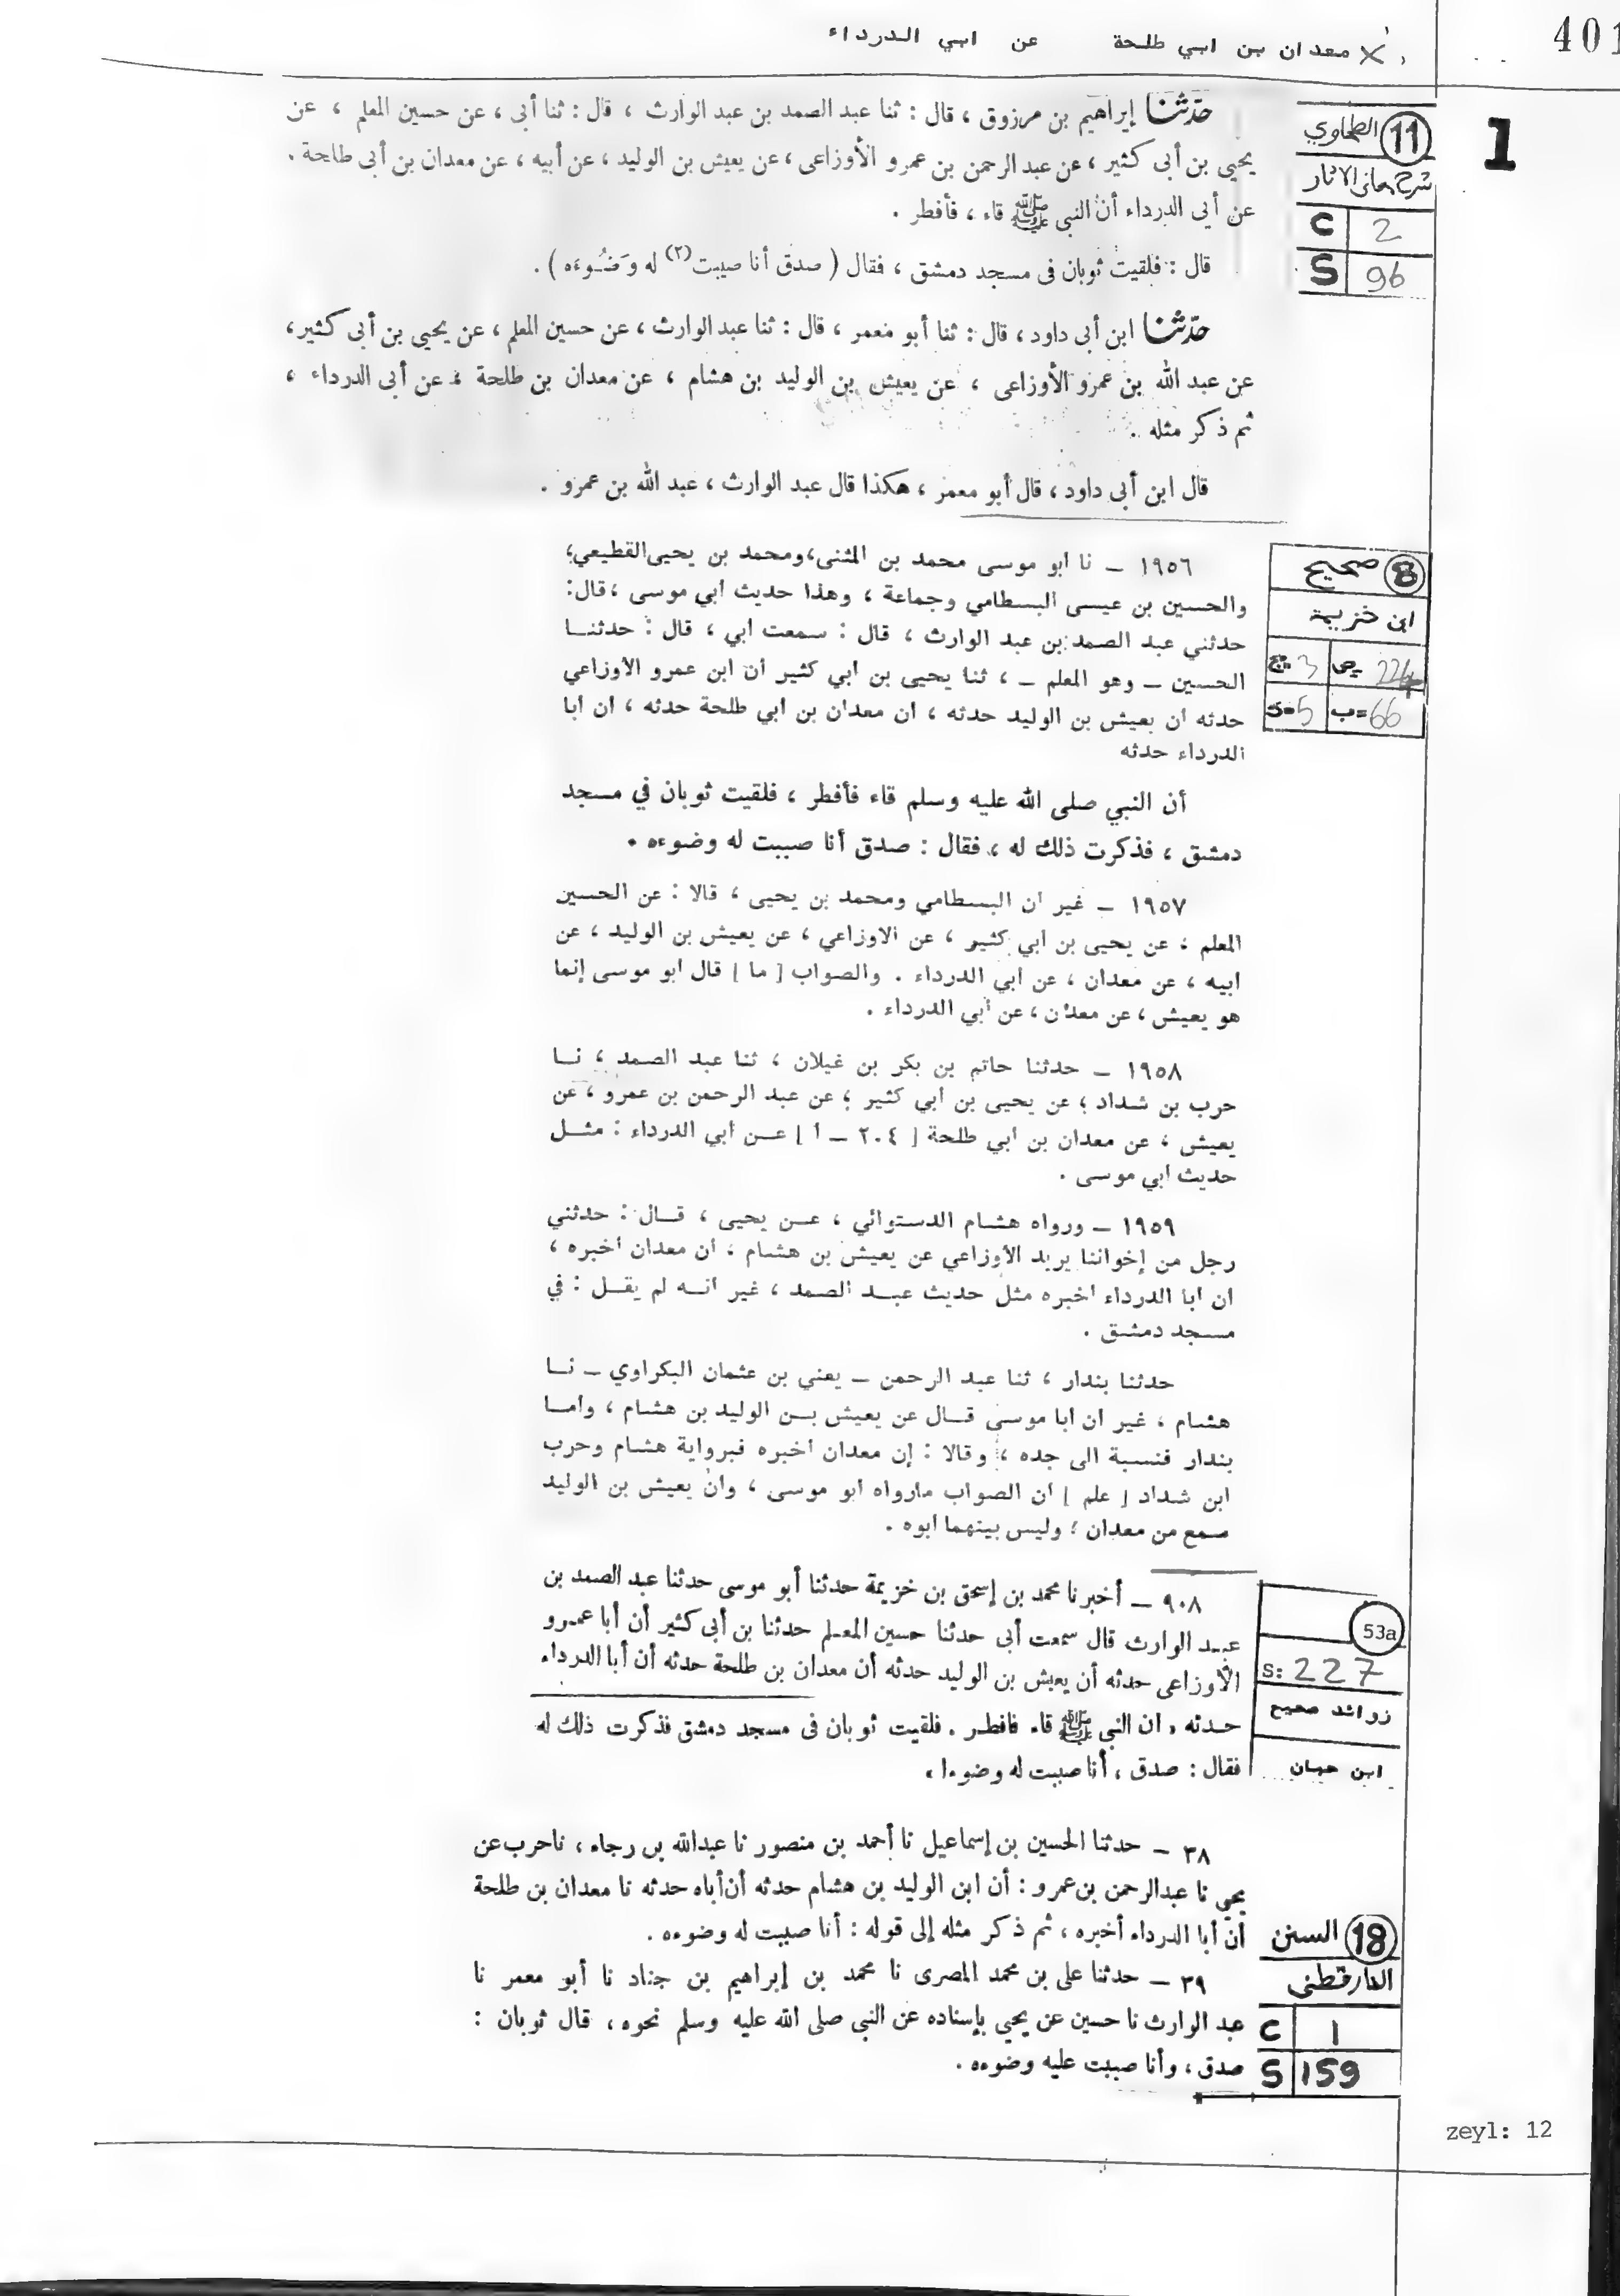 401
× معدان بن ابي طلحة عن ابي الدرداء
1
11 الطحاوي
شرح معانى الاثار
C 2
S 96
حدّثنا إبراهيم بن مرزوق ، قال : ثنا عبد الصمد بن عبد الوارث ، قال : ثنا أبى ، عن حسين المعلم ، عن
يحيى بن أبى كثير ، عن عبد الرحمن بن عمرو الأوزاعى ، عن يعيش بن الوليد ، عن أبيه ، عن معدان بن أبى طلحة .
عن أبى الدرداء أن النبى ﷺ قاء ، فأفطر .
قال : فلقيت ثوبان فى مسجد دمشق ، فقال ( صدق أنا صببت(٢) له وَضُوءَه ) .
حدّثنا ابن أبى داود ، قال : ثنا أبو معمر ، قال : ثنا عبد الوارث ، عن حسين المعلم ، عن يحيى بن أبى كثير ،
عن عبد الله بن عمرو الأوزاعى ، عن يعيش بن الوليد بن هشام ، عن معدان بن طلحة ، عن أبى الدرداء ،
ثم ذكر مثله .
قال ابن أبى داود ، قال أبو معمر ، هكذا قال عبد الوارث ، عبد الله بن عمرو .
8 صحيح
ابن خزيمة
ج 3 ص 224
5 ب= 66
١٩٥٦ ــ نا ابو موسى محمد بن المثنى ، ومحمد بن يحيى القطيعي ؛
والحسين بن عيسى البسطامي وجماعة ، وهذا حديث أبي موسى ، قال :
حدثني عبد الصمد بن عبد الوارث ، قال : سمعت ابي ، قال : حدثنــا
الحسين ــ وهو المعلم ــ ، ثنا يحيى بن ابي كثير أن ابن عمرو الأوزاعي
حدثه ان يعيش بن الوليد حدثه ، ان معدان بن ابي طلحة حدثه ، ان ابا
الدرداء حدثه
أن النبي صلى الله عليه وسلم قاء فأفطر ، فلقيت ثوبان في مسجد
دمشق ، فذكرت ذلك له ، فقال : صدق أنا صببت له وضوءه .
١٩٥٧ ــ غير ان البسطامي ومحمد بن يحيى ، قالا : عن الحسين
المعلم ، عن يحيى بن أبي كثير ، عن الاوزاعي ، عن يعيش بن الوليد ، عن
ابيه ، عن معدان ، عن ابي الدرداء . والصواب [ ما ] قال ابو موسى إنما
هو يعيش ، عن معدان ، عن أبي الدرداء .
١٩٥٨ ــ حدثنا حاتم بن بكر بن غيلان ، ثنا عبد الصمد ، نــا
حرب بن شداد ، عن يحيى بن أبي كثير ، عن عبد الرحمن بن عمرو ، عن
يعيش ، عن معدان بن ابي طلحة [ ٢٠٤ ــ أ ] عــن ابي الدرداء : مثــل
حديث ابي موسى .
١٩٥٩ ــ ورواه هشام الدستوائي ، عــن يحيى ، قــال : حدثني
رجل من إخواننا يريد الأوزاعي عن يعيش بن هشام ، ان معدان اخبره ،
ان ابا الدرداء اخبره مثل حديث عبــد الصمد ، غير انــه لم يقــل : في
مسجد دمشق .
حدثنا بندار ، ثنا عبد الرحمن ــ يعني بن عثمان البكراوي ــ نــا
هشام ، غير ان ابا موسى قــال عن يعيش بــن الوليد بن هشام ، وأمــا
بندار فنسبة الى جده ، وقالا : إن معدان اخبره فبرواية هشام وحرب
ابن شداد [ علم ] ان الصواب مارواه ابو موسى ، وان يعيش بن الوليد
سمع من معدان ؛ وليس بينهما ابوه .
53a
S: 227
زوائد صحيح
ابن حبان
٩٠٨ ــ أخبرنا محمد بن إسحق بن خزيمة حدثنا أبو موسى حدثنا عبد الصمد بن
عبــد الوارث قال سمعت أبى حدثنا حسين المعــلم حدثنا بن أبى كثير أن أبا عمـرو
الأوزاعى حدثه أن يعيش بن الوليد حدثه أن معدان بن طلحة حدثه أن أبا الدرداء
حـدثه ، ان النبي ﷺ قاء فافطـر . فلقيت ثوبان فى مسجد دمشق فذكرت ذلك له
فقال : صدق ، أنا صببت له وضوءا ،
18 السنن
الدارقطنى
C 1
S 159
٣٨ ــ حدثنا الحسين بن إسماعيل نا أحمد بن منصور نا عبدالله بن رجاء ، نا حرب عن
يحيى نا عبدالرحمن بن عمرو : أن ابن الوليد بن هشام حدثه أن أباه حدثه نا معدان بن طلحة
أن أبا الدرداء أخبره ، ثم ذكر مثله إلى قوله : أنا صببت له وضوءه .
٣٩ ــ حدثنا على بن محمد المصرى نا محمد بن إبراهيم بن جناد نا أبو معمر نا
عبد الوارث نا حسين عن يحيى بإسناده عن النبى صلى الله عليه وسلم نحوه ، قال ثوبان :
صدق ، وأنا صببت عليه وضوءه .
zeyl: 12